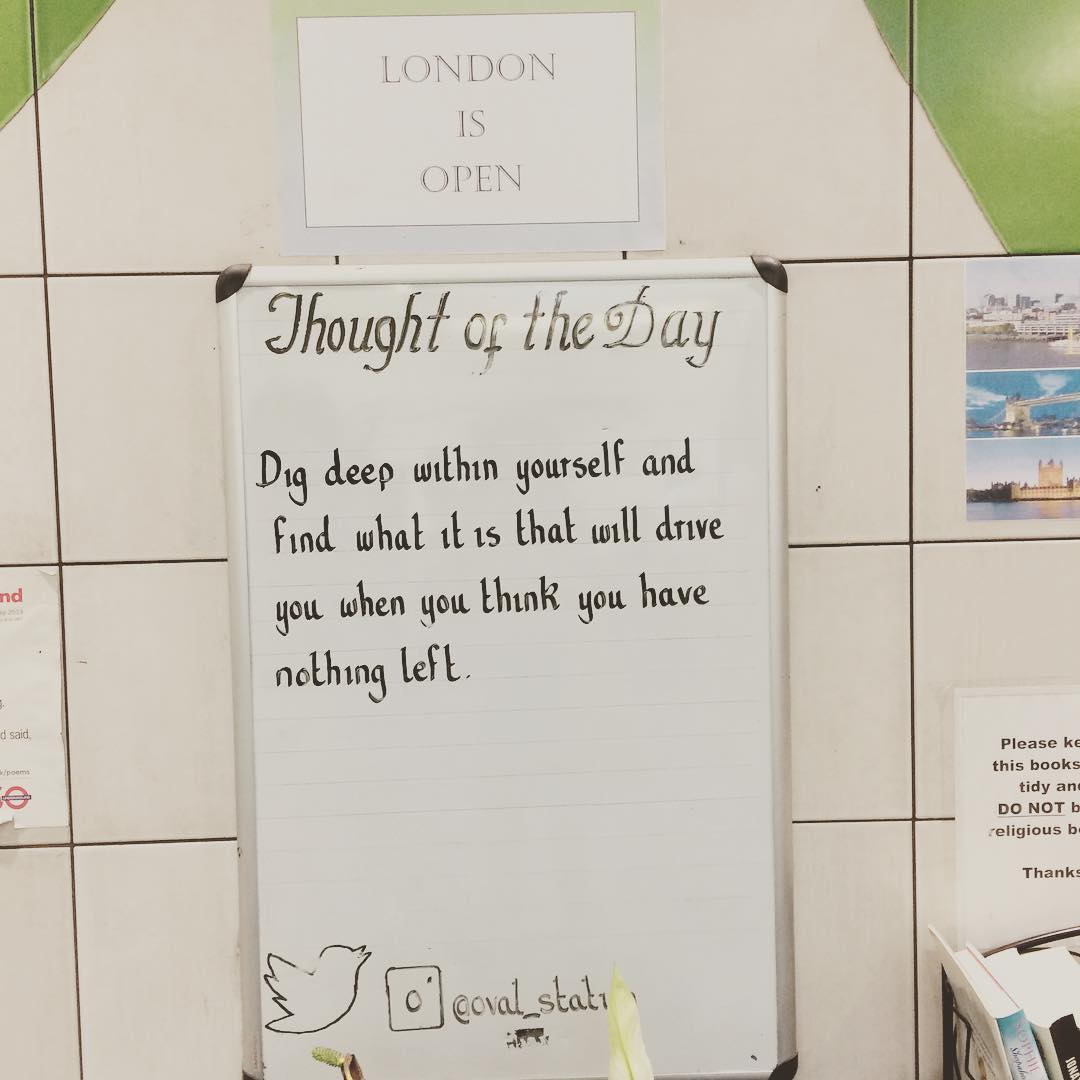 LONDON
IS
OPEN
Thought of the Day
Dig deep within yourself and
find what it is that will drive
you when you think you have
nothing left.
@oval_stati
nd
d said,
k/poems
Please ke
this books
tidy and
DO NOT b
religious b
Thanks
SOPHIE
JONA